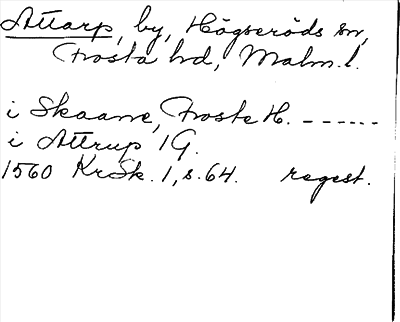 Attarp, by, Högseröds sn,
Frosta hd, Malm. l.
i Skaane, Froste H. ------
i Attrup 1 G.
1560 KrSk. 1, s. 64. regest.